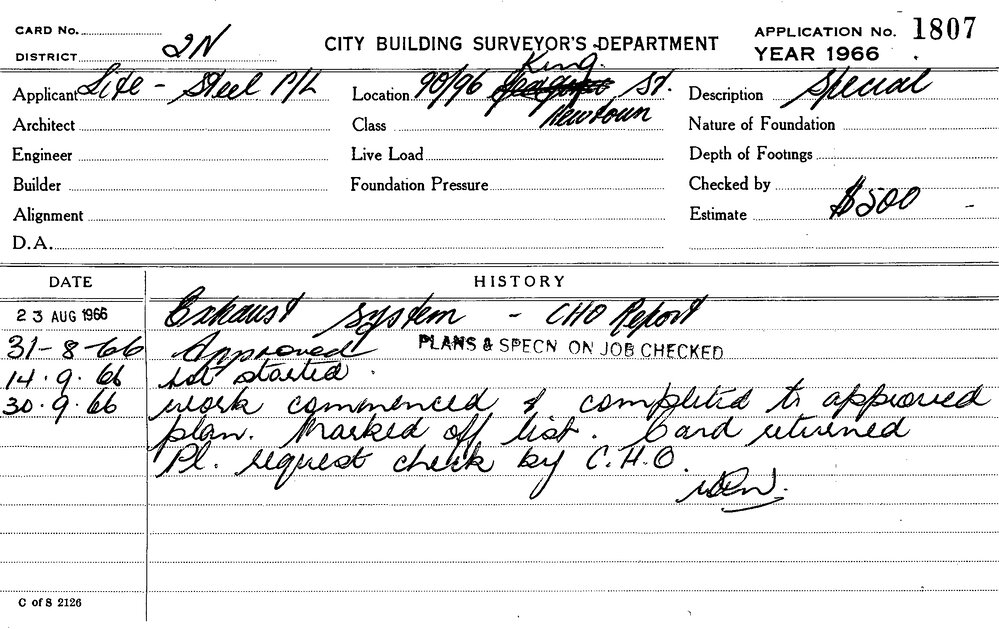 CARD No.
DISTRICT 2N
CITY BUILDING SURVEYOR'S DEPARTMENT
APPLICATION No. 1807
YEAR 1966
Applicant Lite - Steel P/L
Location 90/96 King St. Newtown
Description Special
Architect
Class
Nature of Foundation
Engineer
Live Load
Depth of Footings
Builder
Foundation Pressure
Checked by
Alignment
Estimate $500 -
D.A.
DATE HISTORY
23 AUG 1966 Exhaust system - CHO Report
31-8-66 Approved PLANS & SPECN ON JOB CHECKED
14.9.66 not started.
30.9.66 work commenced & completed to approved
plan. Marked off list. Card returned
Pl. request check by C.H.O.
C of S 2126